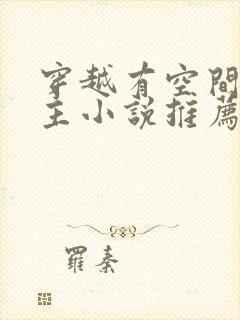 穿越有空間
主小說推薦
羅秦